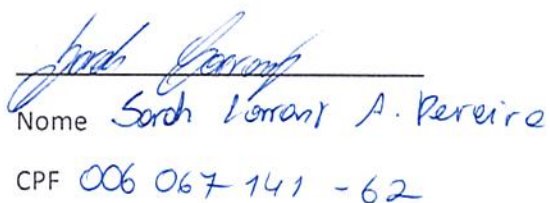 Sarah Lorrany
Nome Sarah Lorrany A. Pereira
CPF 006 067 141 - 62